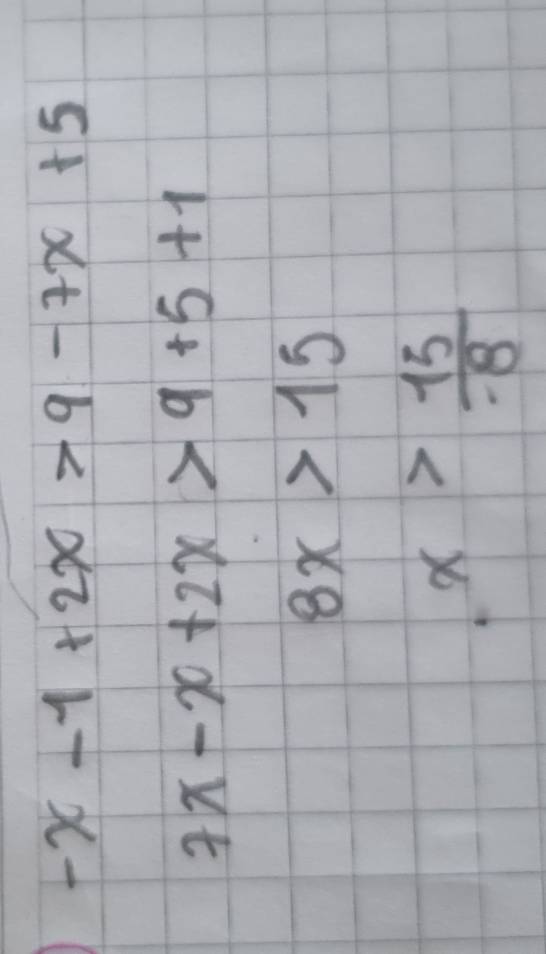 -x - 1 + 2x > 9 - 7x + 5
7x - x + 2x > 9 + 5 + 1
8x > 15
x > 15/8